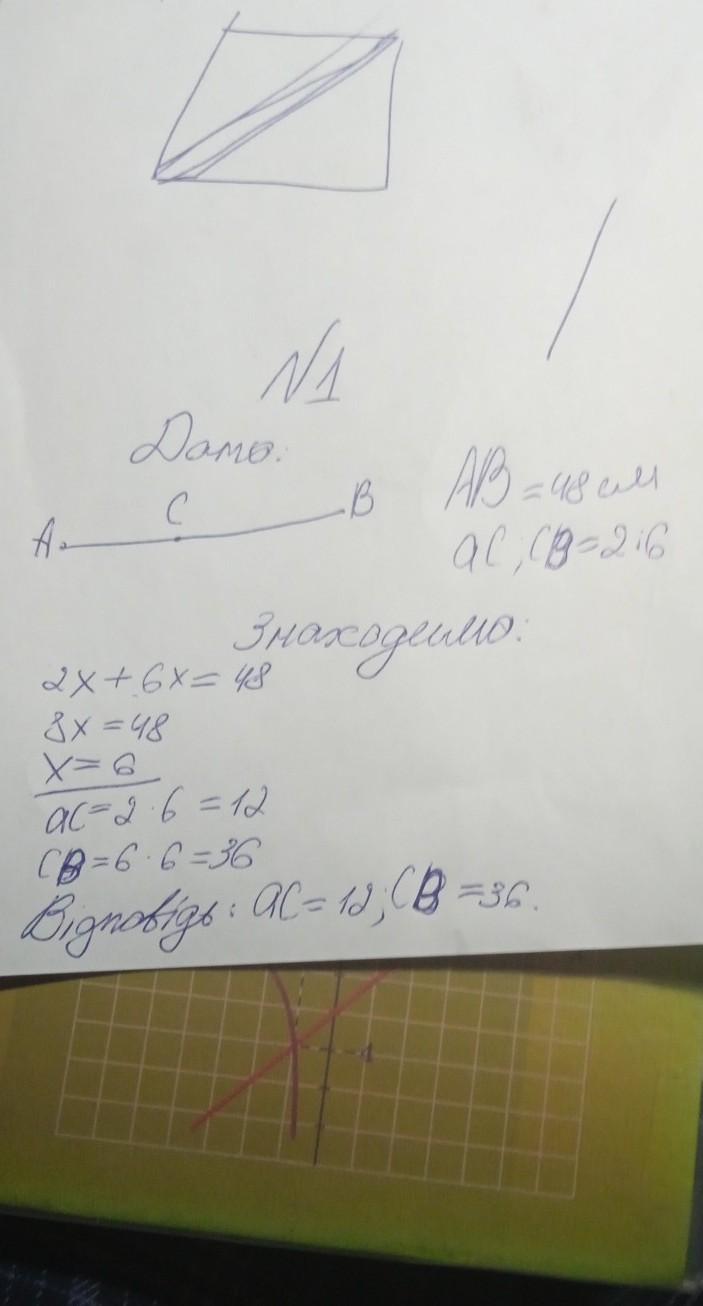 №1
Дано:
A C B
AB = 48 см
aC; CB = 2:6
Знаходимо:
2x + 6x = 48
8x = 48
x = 6
aC = 2 · 6 = 12
CB = 6 · 6 = 36
Відповідь: aC = 12; CB = 36.